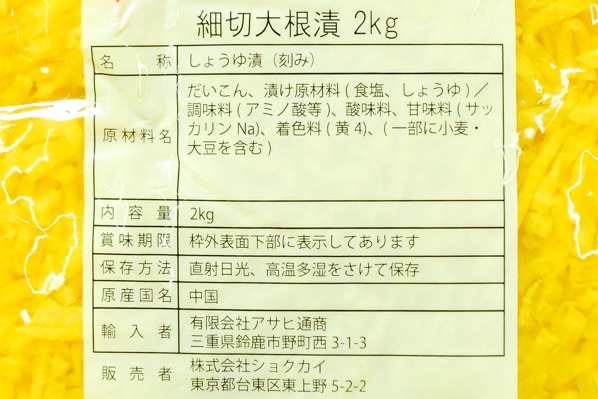 細切大根漬 2kg
名称 しょうゆ漬（刻み）
原材料名 だいこん、漬け原材料(食塩、しょうゆ)／
調味料(アミノ酸等)、酸味料、甘味料(サッ
カリンNa)、着色料(黄4)、(一部に小麦・
大豆を含む)
内容量 2kg
賞味期限 枠外表面下部に表示してあります
保存方法 直射日光、高温多湿をさけて保存
原産国名 中国
輸入者 有限会社アサヒ通商
三重県鈴鹿市野町西 3-1-3
販売者 株式会社ショクカイ
東京都台東区東上野 5-2-2